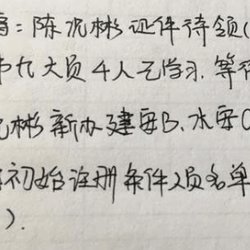 : 陈沉彬 证件待领(
九大员4人已学习.等待
彬 新办建安B、水安C
初始注册条件人员名单
).